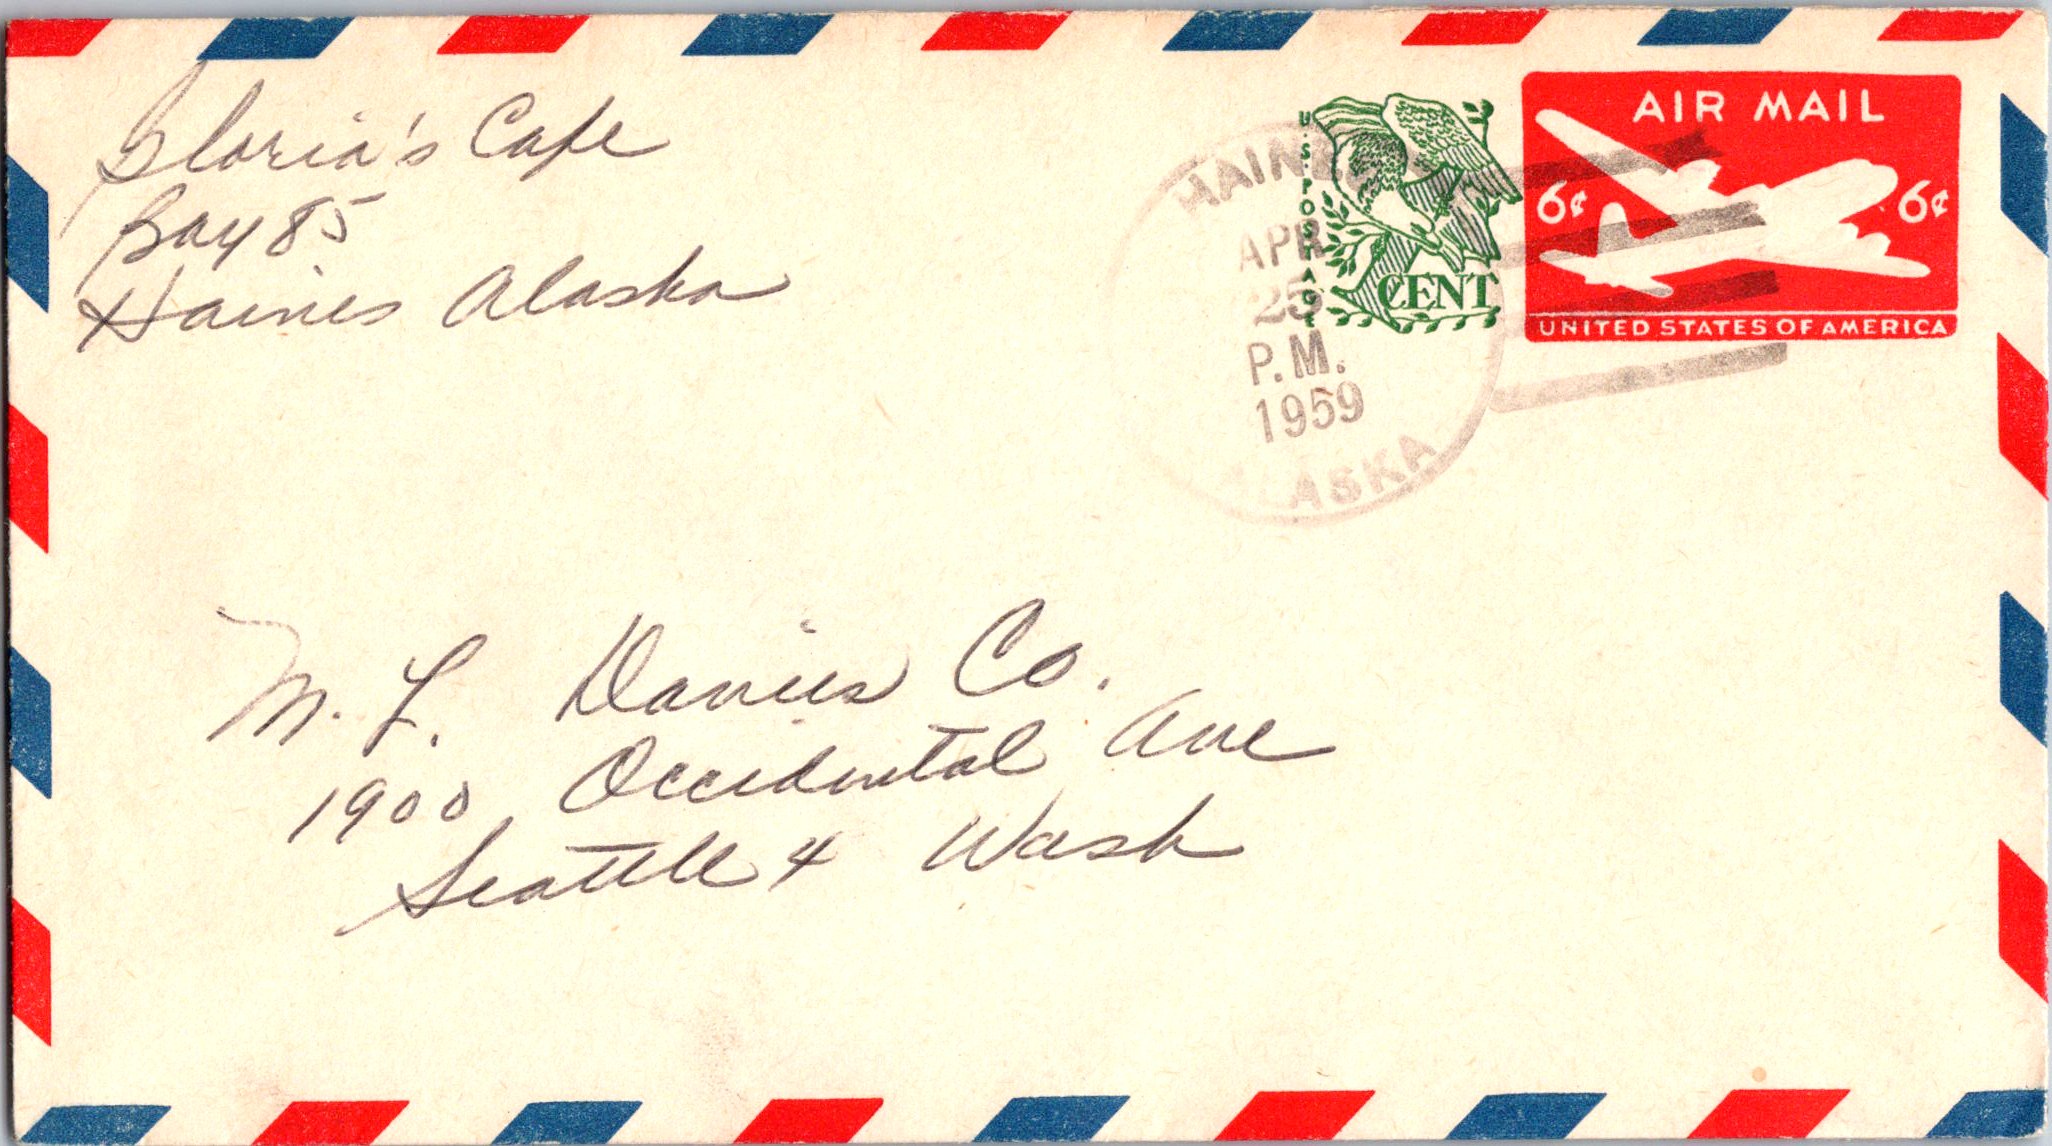 Gloria's Cafe
Box 85
Haines Alaska
HAINES
APR
25
P.M.
1959
ALASKA
U.S. POSTAGE
1 CENT
AIR MAIL
6¢ 6¢
UNITED STATES OF AMERICA
M. L. Davies Co.
1900 Occidental Ave
Seattle 4 Wash